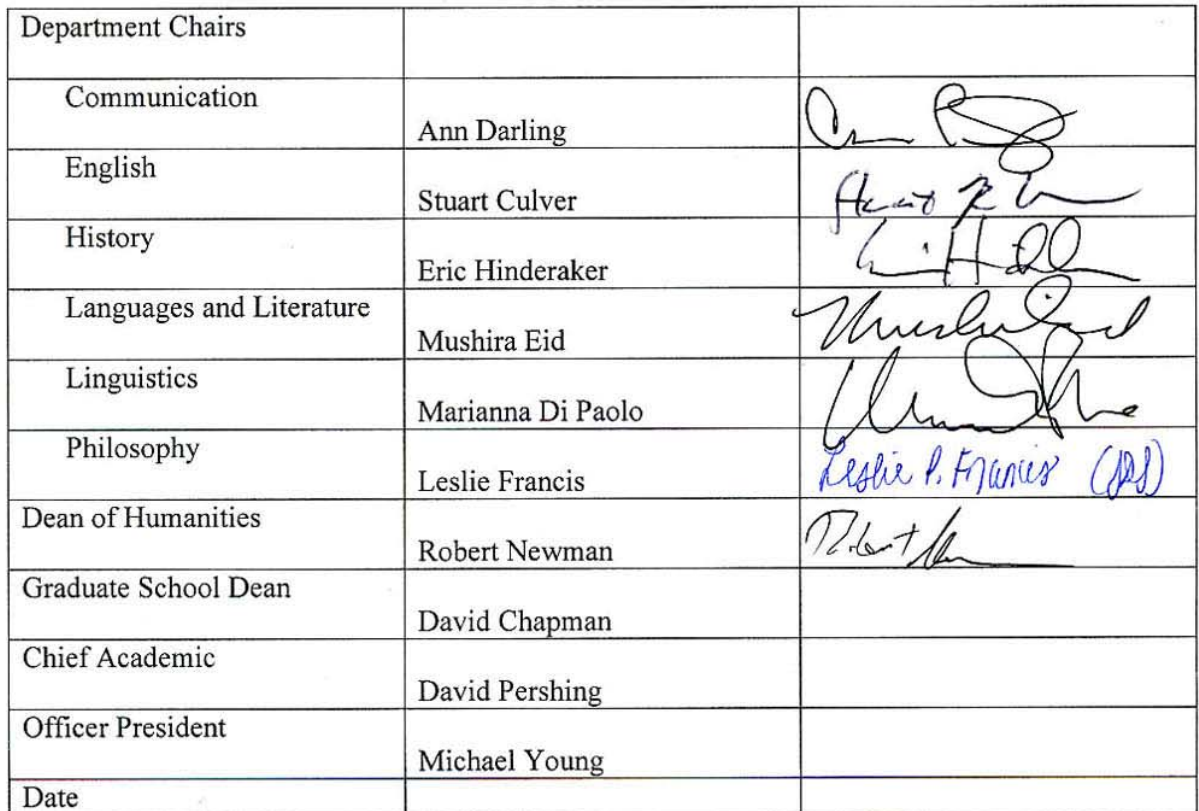 Department Chairs
Communication
Ann Darling
English
Stuart Culver
History
Eric Hinderaker
Languages and Literature
Mushira Eid
Linguistics
Marianna Di Paolo
Philosophy
Leslie Francis
Leslie P. Francis
Dean of Humanities
Robert Newman
Graduate School Dean
David Chapman
Chief Academic
David Pershing
Officer President
Michael Young
Date